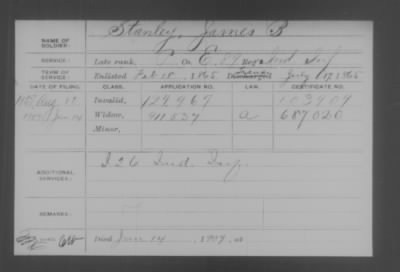 NAME OF SOLDIER: Stanley, James B
SERVICE: Late rank, P Co. E, 89 Reg't Ind Inf
TERM OF SERVICE: Enlisted Feb 18, 1865 July 17, 1865
DATE OF FILING. CLASS. APPLICATION NO. LAW. CERTIFICATE NO.
Aug. 17 Invalid, 129,967 103909
1909 Jan 14 Widow, 911,537 a 687020
Minor,
ADDITIONAL SERVICES: I 26 Ind. Inf.
REMARKS:
Died June 14, 1907, at